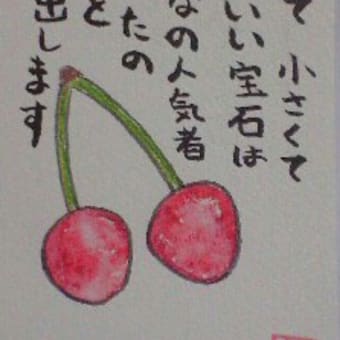 て 小さくて
いい宝石は
なの人気者
たの
と
出します